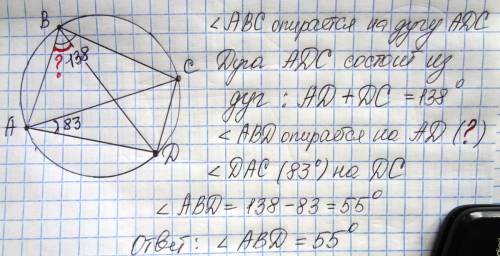 B
? 138
C
A
83
D
∠ABC опирается на дугу ADC
Дуга ADC состоит из
дуг : AD + DC = 138°
∠ABD опирается на AD (?)
∠DAC (83°) на DC
∠ABD = 138 - 83 = 55°
Ответ: ∠ABD = 55°